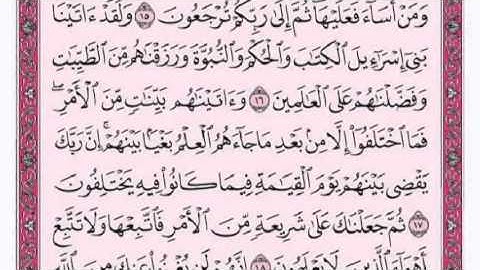 وَمَنْ أَسَآءَ فَعَلَيْهَا ثُمَّ إِلَىٰ رَبِّكُمْ تُرْجَعُونَ ١٥ وَلَقَدْ ءَاتَيْنَا
بَنِىٓ إِسْرَٰٓءِيلَ ٱلْكِتَٰبَ وَٱلْحُكْمَ وَٱلنُّبُوَّةَ وَرَزَقْنَٰهُم مِّنَ ٱلطَّيِّبَٰتِ
وَفَضَّلْنَٰهُمْ عَلَى ٱلْعَٰلَمِينَ ١٦ وَءَاتَيْنَٰهُم بَيِّنَٰتٍ مِّنَ ٱلْأَمْرِ ۖ
فَمَا ٱخْتَلَفُوٓا۟ إِلَّا مِنۢ بَعْدِ مَا جَآءَهُمُ ٱلْعِلْمُ بَغْيًۢا بَيْنَهُمْ ۚ إِنَّ رَبَّكَ
يَقْضِى بَيْنَهُمْ يَوْمَ ٱلْقِيَٰمَةِ فِيمَا كَانُوا۟ فِيهِ يَخْتَلِفُونَ
١٧ ثُمَّ جَعَلْنَٰكَ عَلَىٰ شَرِيعَةٍ مِّنَ ٱلْأَمْرِ فَٱتَّبِعْهَا وَلَا تَتَّبِعْ
أَهْوَآءَ ٱلَّذِينَ لَا يَعْلَمُونَ ١٨ إِنَّهُمْ لَن يُغْنُوا۟ عَنكَ مِنَ ٱللَّهِ